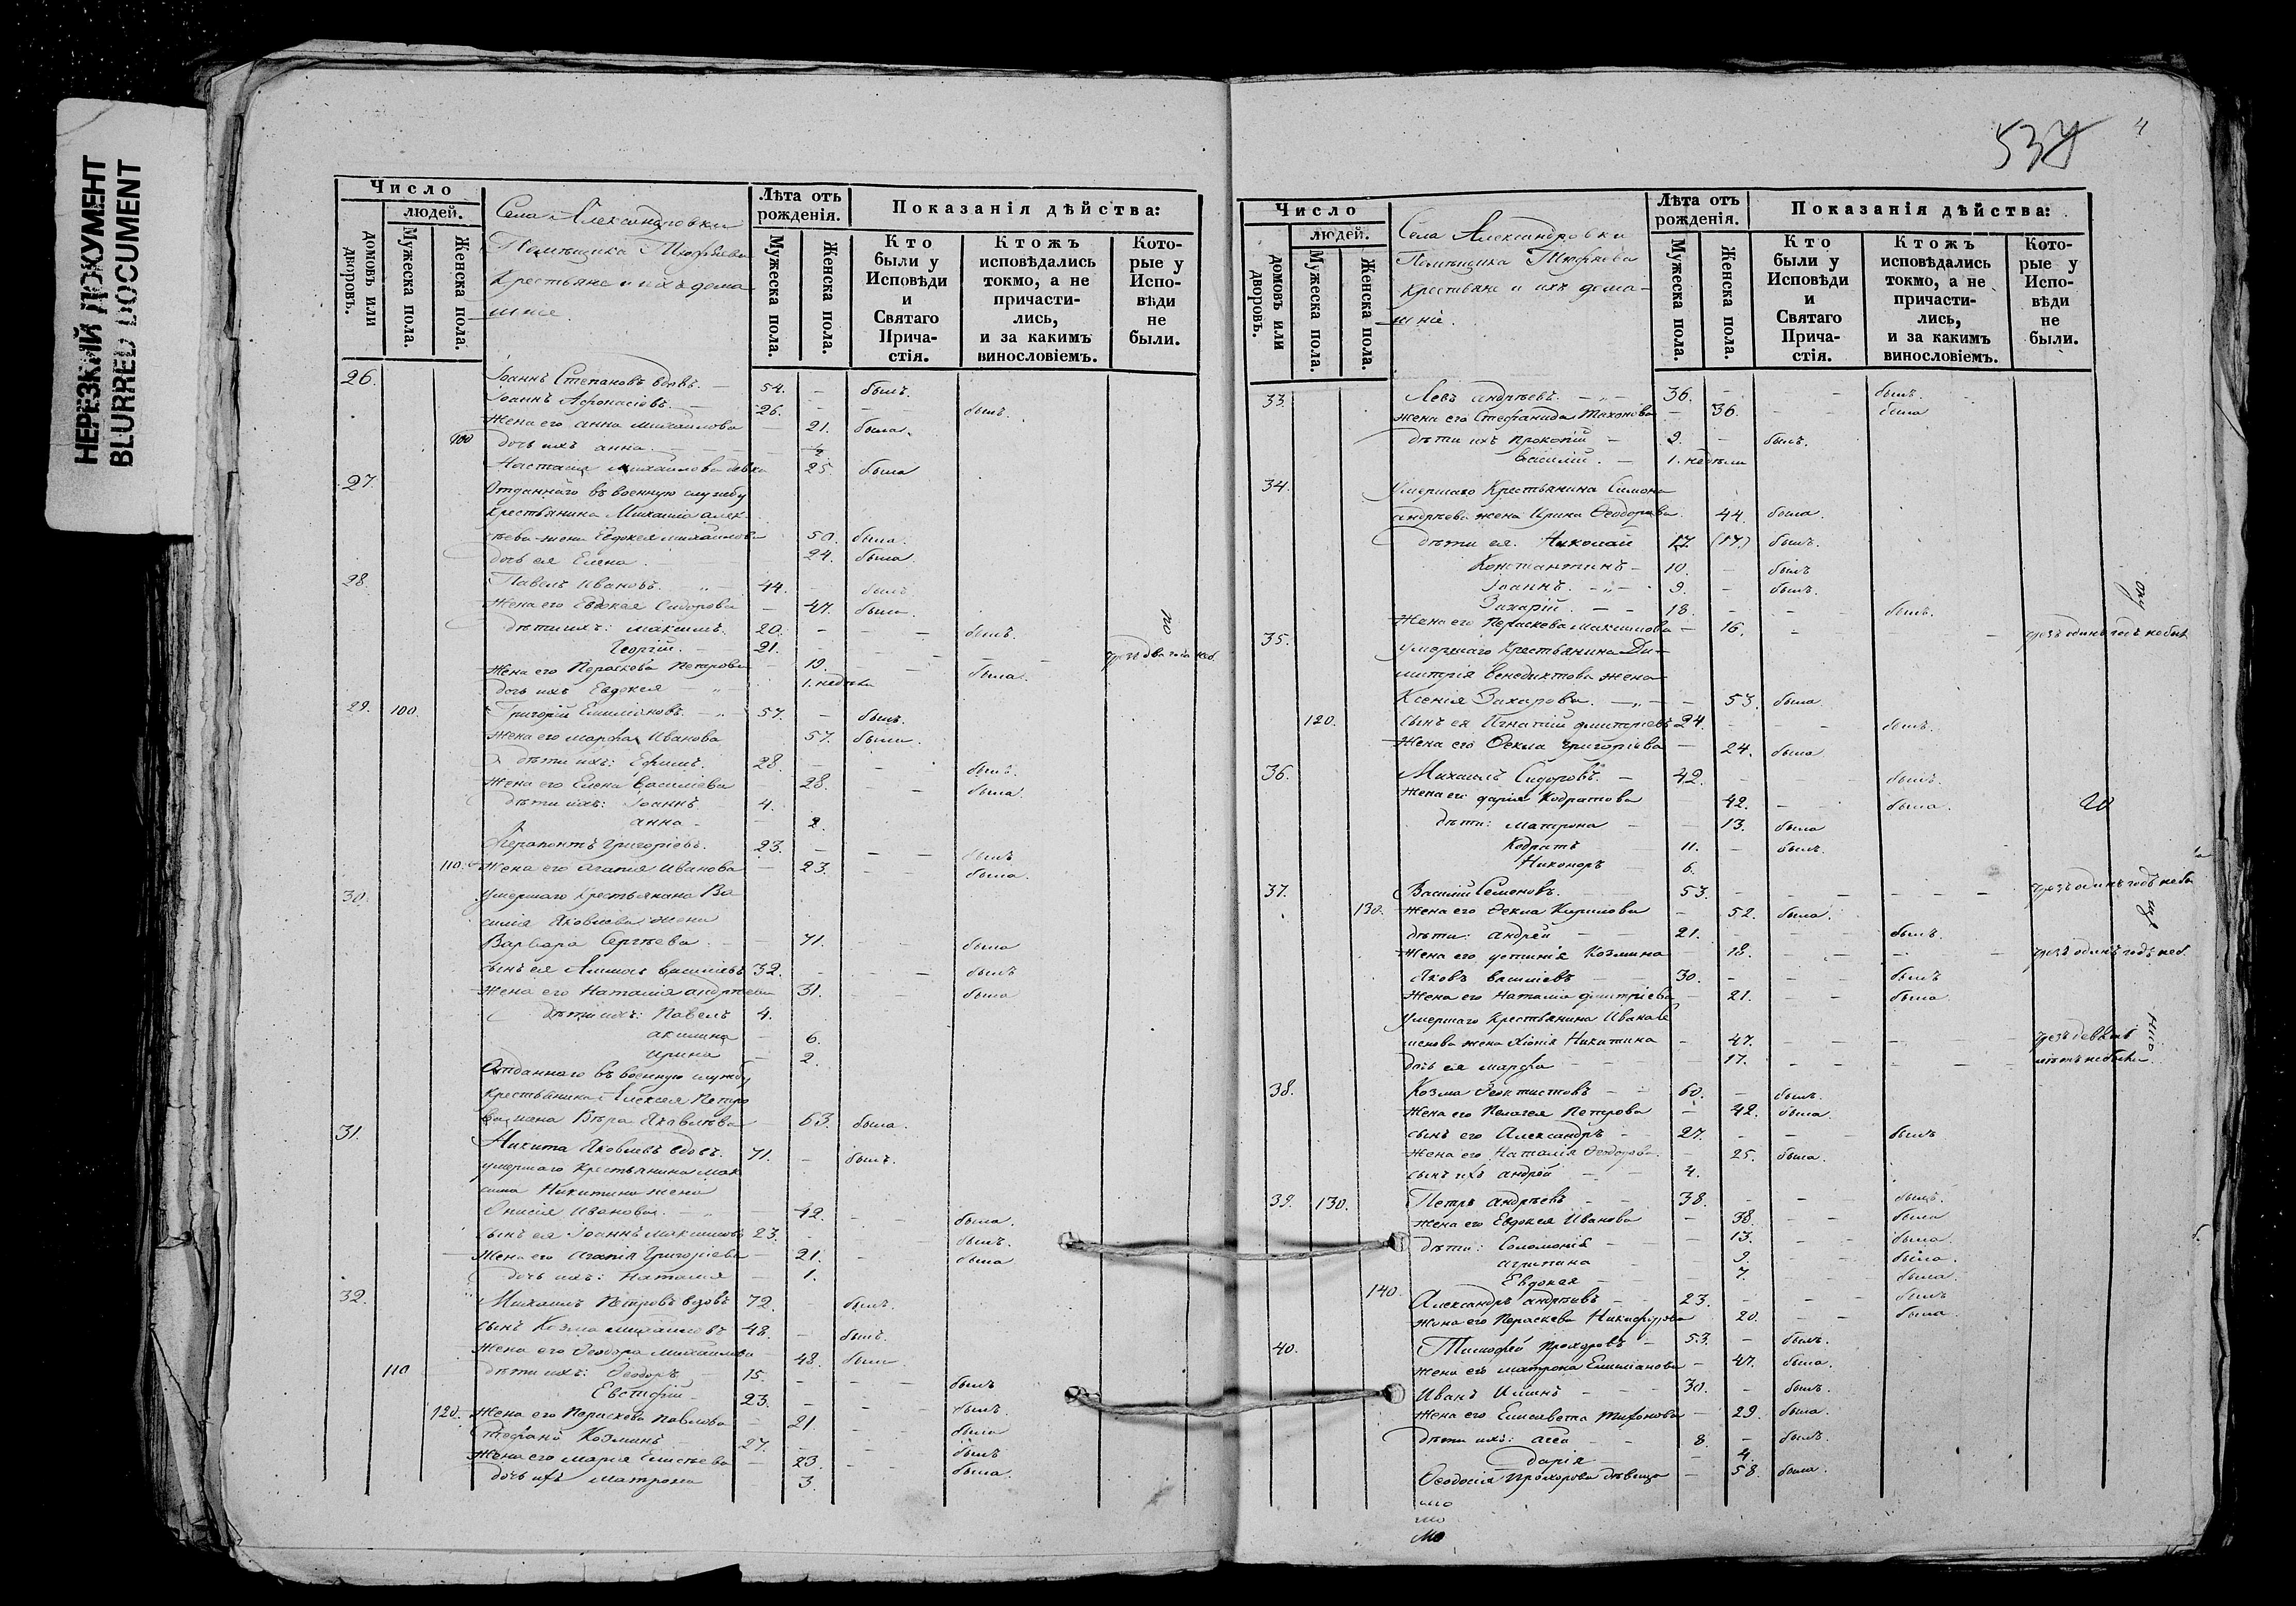 НЕРЕЗКИЙ ДОКУМЕНТ
BLURRED DOCUMENT
Число
людей.
домовъ или дворовъ.
Мужеска пола.
Женска пола.
Села Александровки
Помѣщика
Крестьяне и ихъ дома-
шніе.
Лѣта отъ рожденія.
Мужеска пола.
Женска пола.
Показанія дѣйства:
Кто были у Исповѣди и Святаго Прича-стія.
Ктожъ исповѣдались токмо, а не причасти-лись, и за какимъ винословіемъ.
Кото-рые у Испо-вѣди не были.
26. Іоаннъ Степановъ вдовъ. 54. – былъ.
Іоаннъ Афонасіевъ. 26. – былъ.
Жена его анна михаилова – 21. была.
100 дочь ихъ анна. ½
Настасія михаилова девка 25 была
27 Отданнаго въ военную службу
крестьянина Михаила алек
сѣева жена Евдокея михаилова 50. была.
дочь ея Елена. 24. была.
28. Павелъ Ивановъ. 44. былъ
Жена его Евдокея Сидорова – 47. была.
дѣти ихъ: максимъ. 20. – – былъ.
Георгій. 21. – – – чрезъ два года неб.
Жена его Пораскева Петрова 19. – – была.
дочь ихъ Евдокея 1. недѣля
29. 100. Григорій Емиліановъ. 57. – былъ.
Жена его марфа Иванова 57. была.
дѣти ихъ: Ефимъ. 28. – – былъ.
Жена его Елена Василіева 28. – – была.
дѣти ихъ: Іоаннъ 4.
анна – 2.
Ѳерапонтъ Григоріевъ. 23. – – – былъ
110. Жена его агапія Иванова – 23. – – была.
30. умершаго крестьянина Ва
силія Яковлева жена
Варвара Сергѣева. 71. – – была
сынъ ея василіевъ 32. – – – былъ
Жена его Наталія андрѣева 31. – – была
дѣти ихъ: Павелъ 4.
акилина – 6.
ирина – 2.
Отданнаго въ военную службу
крестьянина Алексея Петро
ва жена Вѣра Яковлева 63. была.
31. Никита Яковлевъ вдовъ. 71. – былъ.
умершаго крестьянина мак
сима Никитина жена
Ивановая. 42. – – была.
сынъ ея Іоаннъ максимовъ 23. – былъ.
Жена его Агапія Григоріева – 21. – была
дочь ихъ: Наталія – 1.
32. Михаилъ Петровъ вдовъ 72. – былъ.
сынъ Козма михаиловъ 48. – былъ.
Жена его Ѳеодора михаилова 48. была
110 дѣти ихъ: Ѳеодоръ 15. – – – былъ
Евстафій 23. – – былъ.
120. Жена его Пораскева Павлова – 21. – – была
Стефанъ Козминъ 27. – – былъ
Жена его марія – 23. – – была.
дочь ихъ матрона 3.
по
4
Число
людей.
домовъ или дворовъ.
Мужеска пола.
Женска пола.
Села Александровки
Помѣщика
Крестьяне и ихъ дома-
шніе.
Лѣта отъ рожденія.
Мужеска пола.
Женска пола.
Показанія дѣйства:
Кто были у Исповѣди и Святаго Прича-стія.
Ктожъ исповѣдались токмо, а не причасти-лись, и за какимъ винословіемъ.
Кото-рые у Испо-вѣди не были.
33. Левъ андрѣевъ. 36. – – былъ.
жена его Стефанида – 36. – – была
дѣти ихъ Прокопій – 9. – былъ.
Василій. – 1. недѣли
34. умершаго крестьянина Симона
андрѣева жена Ирина Ѳеодорова 44. была.
дѣти ея. Николай 17. (17.) былъ.
Константинъ 10. – былъ
Іоаннъ. 9. – былъ.
Захарій. 18. – – былъ.
Жена его Пераскева Максимова 16. – – – чрезъ одинъ годъ не был
35. умершаго крестьянина Ди-
митрія Венедиктова жена
Ксенія Захарова. 53. была.
120. сынъ ея Игнатій дмитріевъ 24. – – – былъ.
Жена его Ѳекла Григоріева – 24. была.
36. Михаилъ Сидоровъ. – 42. – – – былъ.
Жена его дарія Кодратова 42. – – была.
дѣти: матрона – – 13. была
Кодратъ 11. – былъ.
Никоноръ – 6.
37. Василій Семеновъ. 53. – – – – – чрезъ одинъ годъ не бы
130. Жена его Ѳекла Кирилова – 52. была.
дѣти: андрей 21. – – – былъ.
Жена его устинія Козмина 18. – – – – чрезъ одинъ годъ неб.
Яковъ василіевъ 30. – – – былъ
Жена его Наталія дмитріева – 21. – – была.
умершаго крестьянина Ивана
жена Никитина – 47. – – – –
дочь ея марфа – – 17. – – – – лѣтъ не были.
38. Козма Ѳеоктистовъ – 60. – былъ.
Жена его Пелагея Петрова – 42. была.
сынъ его Александръ – 27. – – – былъ
Жена его Наталія Ѳеодорова. – 25. была.
сынъ ихъ андрей – 4.
39. 130. Петръ андрѣевъ – 38. – – – былъ.
Жена его Евдокея Иванова – 38. – – была
дѣти: Соломонія – 13. – – была
агрипина – 9. – – была.
Евдокея – 7. – – была.
140. Александръ андрѣевъ 23. – – – былъ
жена его Пераскева Никифорова 20. – – была.
40. Тимофей Прохоровъ – 53. – былъ.
жена его матрона Емиліанова – 47. была.
Иванъ Ильинъ 30. – былъ.
Жена его Елисавета – 29. была.
дѣти ихъ: 8. – былъ.
дарія – 4.
Ѳеодосія Прохорова дѣвица – 58. была.